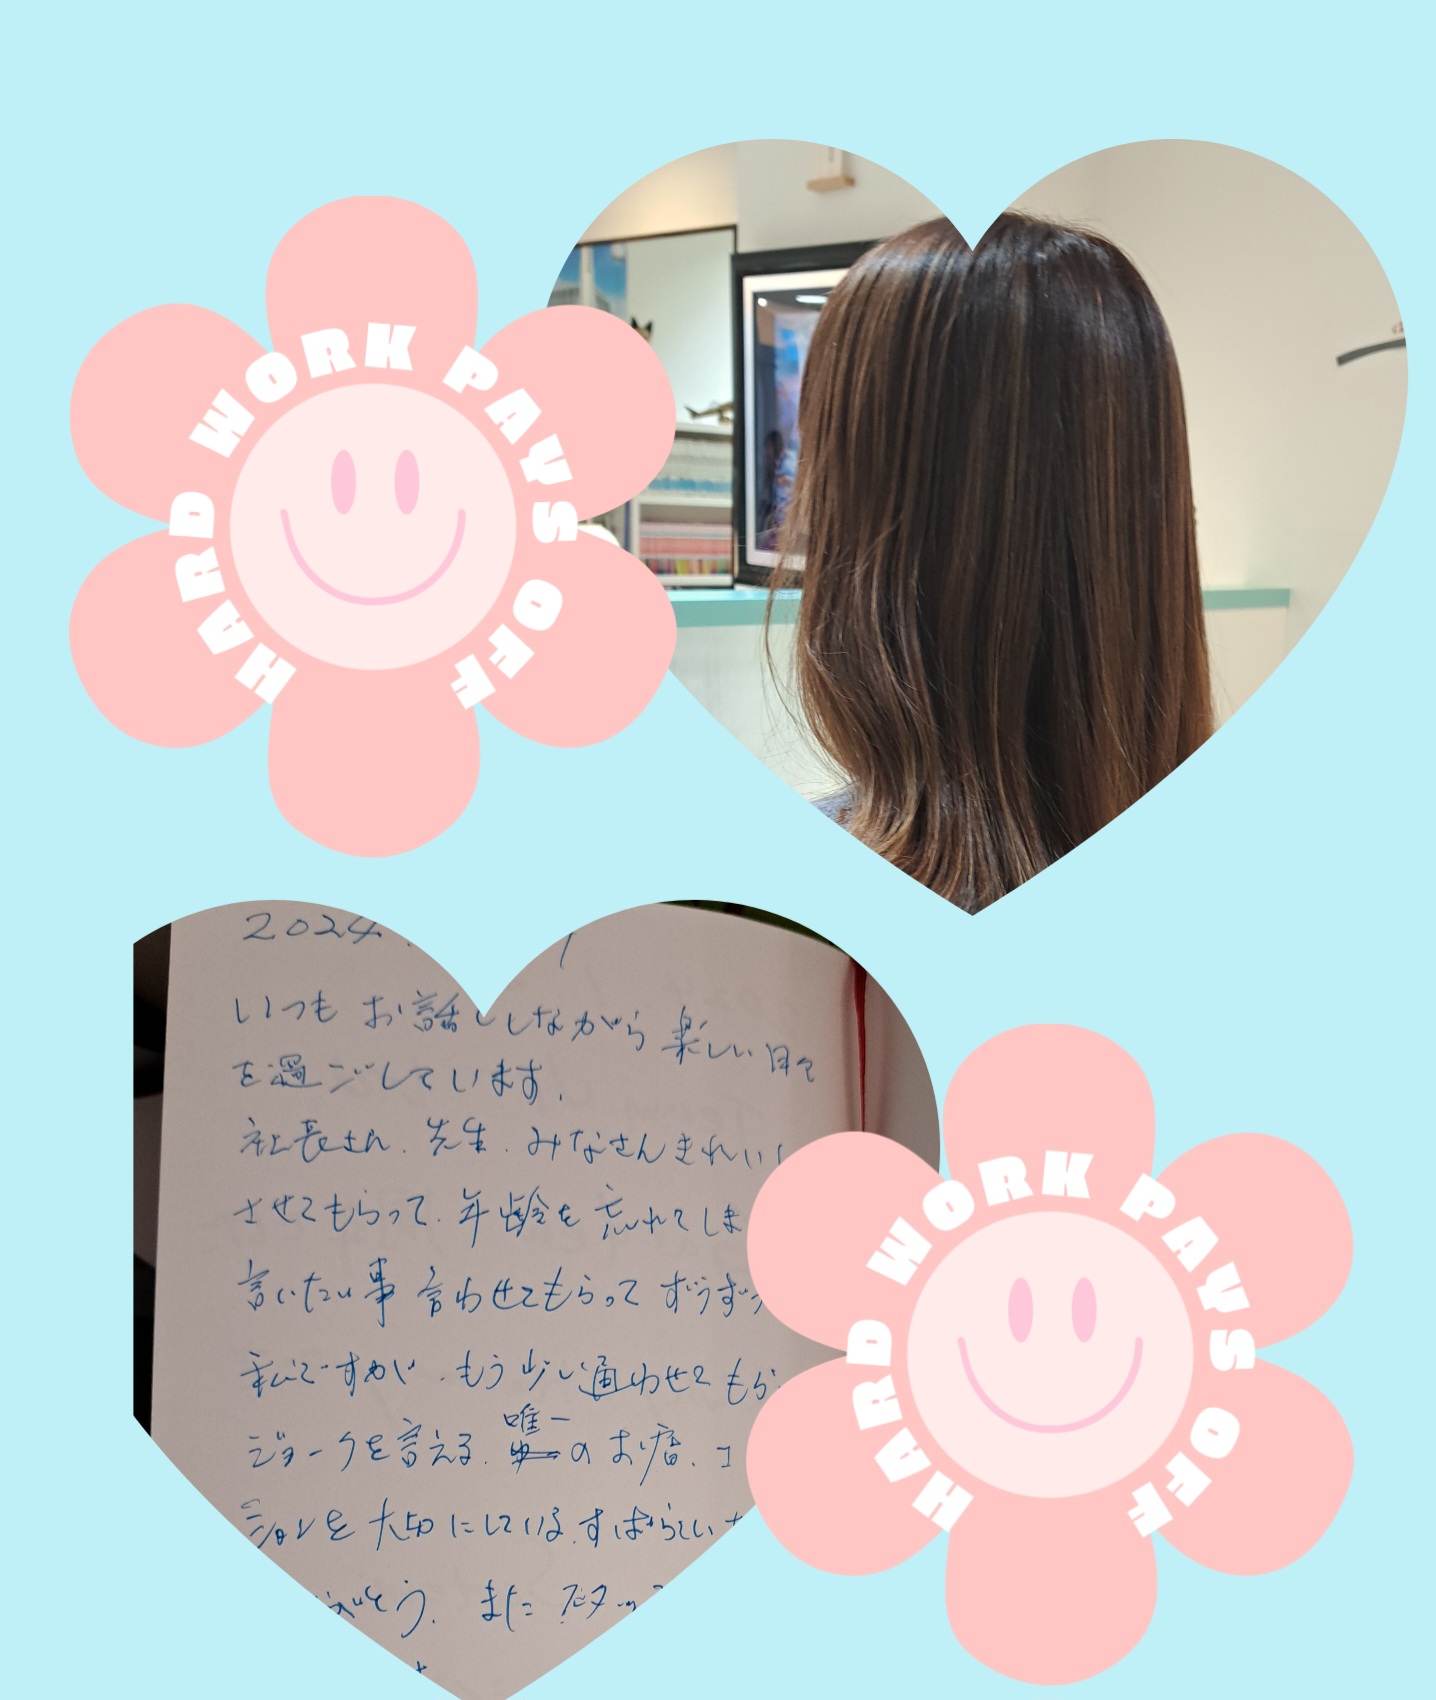 HARD WORK PAYS OFF
2024.
いつもお話ししながら楽しい日々
を過ごしています.
社長さん.先生.みなさんきれいに
させてもらって.年齢を忘れてしま
言いたい事言わせてもらってずうずう
私ですが.もう少し通わせてもら
ジョークを言える.唯一のお店.コ
ションを大切にしている.すばらしい
がとう. また スタッ
HARD WORK PAYS OFF